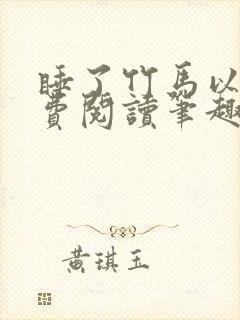 睡了竹马以
费阅读笔趣
黄琪玉